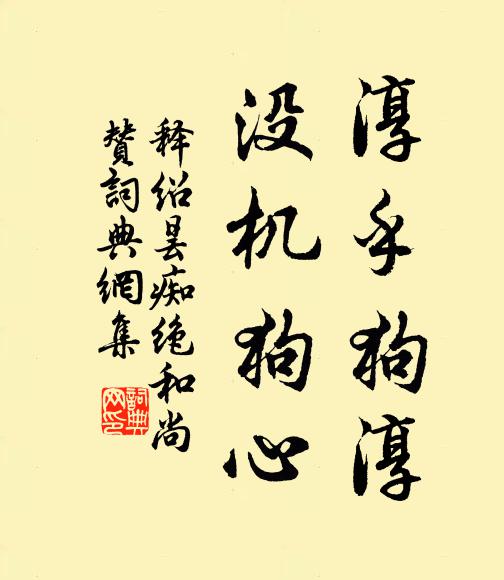 淳乎狗淳
没机狗心
释绍昙痴绝和尚
赞詞典網集
詞典
网印